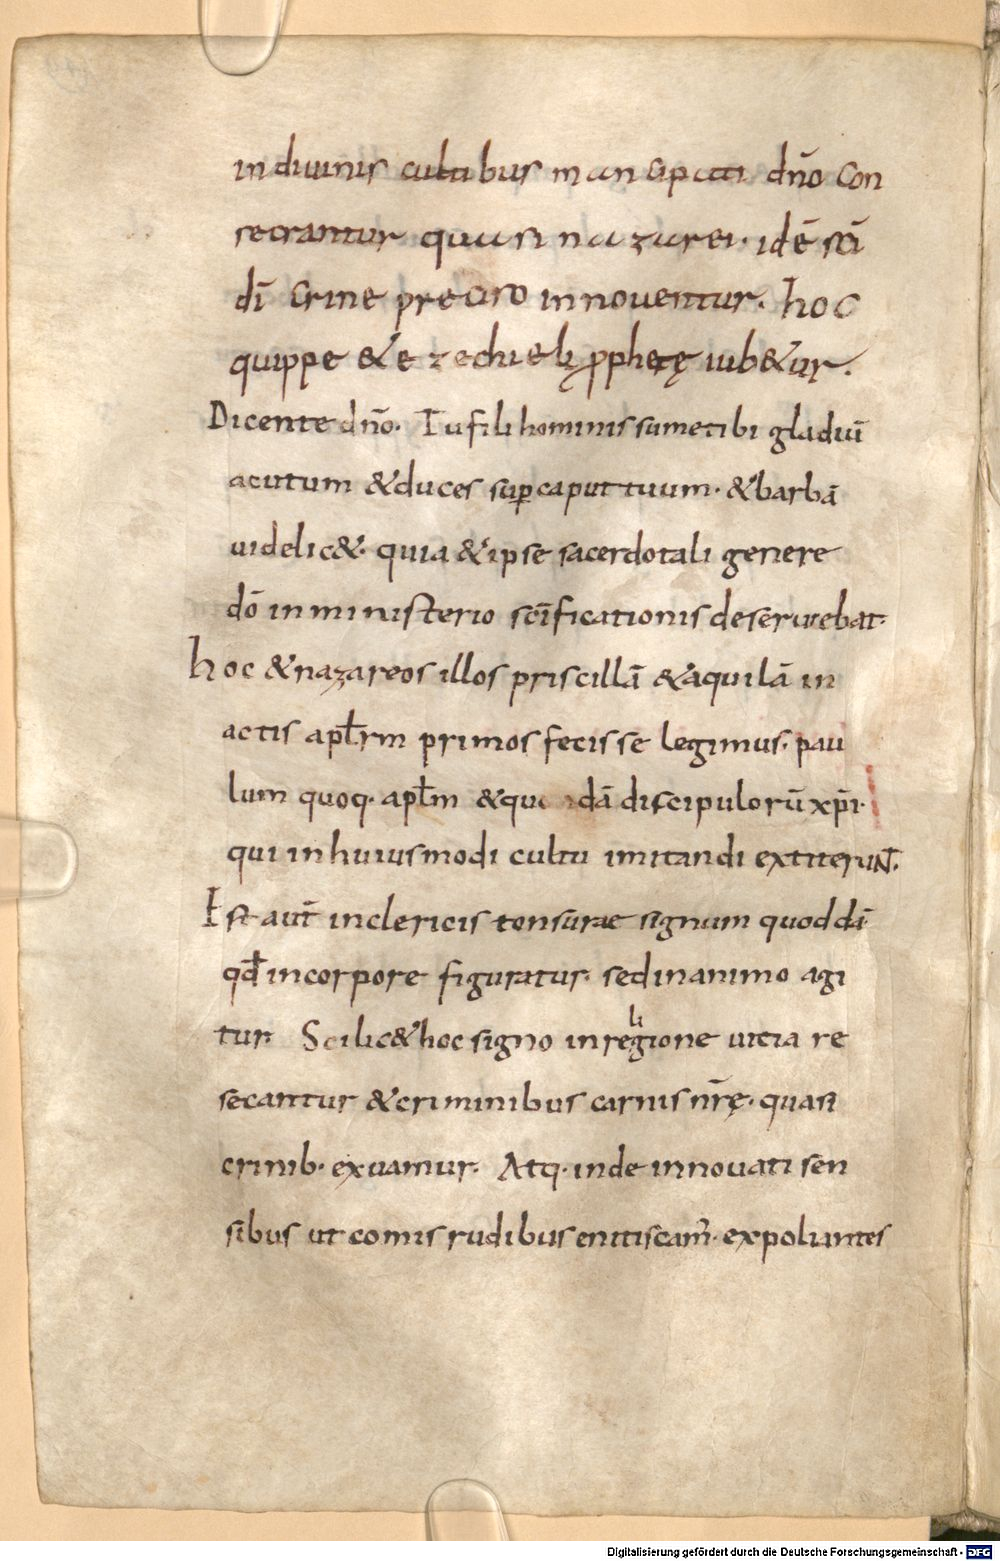 indiuinis cultibus mancipati dn̄o con
secrantur quasi nazarei· idē sc̄i
dī crine preciso innouentur. hoc
quippe & ezechieli ꝓphetę iub&ur.
Dicente dn̄o. Tu fili hominis sume tibi gladiū
acutum & duces suꝑ caput tuum· & barbā
uidelic&· quia & ipse sacerdotali genere
dō in ministerio sc̄ificationis deseruiebat·
hoc & nazareos illos priscillā & aquilā in
actis apl̄rm primos fecisse legimus· pau
lum quoq· apl̄m & dā discipulorū xp̄i·
qui in huiusmodi cultu imitandi extiterūNT·
Est aut̄ inclericis tonsurae signum quoddā
qd̄ in corpore figuratur· sed in animo agi
tur· Scilic& hoc signo in religione uitia re
secantur & criminibus carnis nr̄ę· quasi
crinib· exuamur· Atq· inde innouati sen
sibus ut comis rudibus enitiscam̄· expoliantes
Digitalisierung gefördert durch die Deutsche Forschungsgemeinschaft - DFG